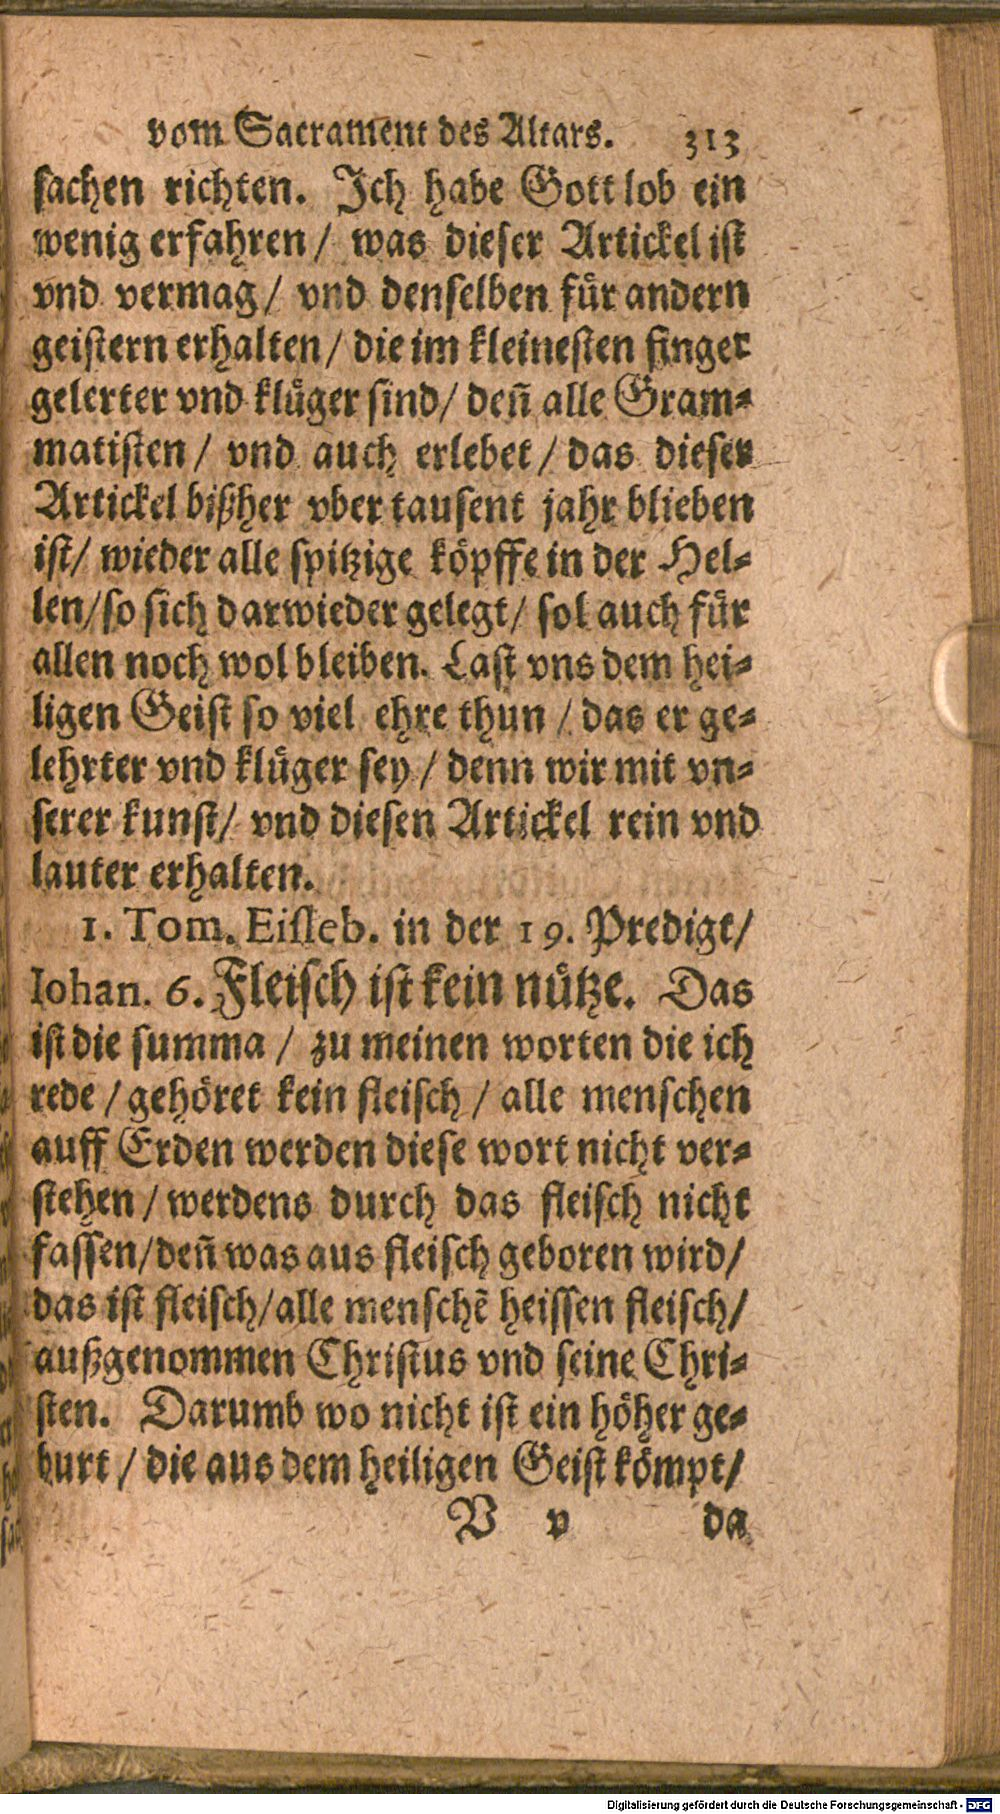 vom Sacrament des Altars. 313
sachen richten. Ich habe Gott lob ein
wenig erfahren / was dieser Artickel ist
vnd vermag / vnd denselben für andern
geistern erhalten / die im kleinesten finger
gelerter vnd klüger sind / deñ alle Gram-
matisten / vnd auch erlebet / das dieser
Artickel bißher vber tausent jahr blieben
ist / wieder alle spitzige köpffe in der Hel-
len / so sich darwieder gelegt / sol auch für
allen noch wol bleiben. Last vns dem hei-
ligen Geist so viel ehre thun / das er ge-
lehrter vnd klüger sey / denn wir mit vn-
serer kunst / vnd diesen Artickel rein vnd
lauter erhalten.
1. Tom. Eisleb. in der 19. Predigt /
Iohan. 6. Fleisch ist kein nütze. Das
ist die summa / zu meinen worten die ich
rede / gehöret kein fleisch / alle menschen
auff Erden werden diese wort nicht ver-
stehen / werdens durch das fleisch nicht
fassen / deñ was aus fleisch geboren wird /
das ist fleisch / alle menschẽ heissen fleisch /
außgenommen Christus vnd seine Chri-
sten. Darumb wo nicht ist ein höher ge-
burt / die aus dem heiligen Geist kömpt /
V v da
Digitalisierung gefördert durch die Deutsche Forschungsgemeinschaft - DFG